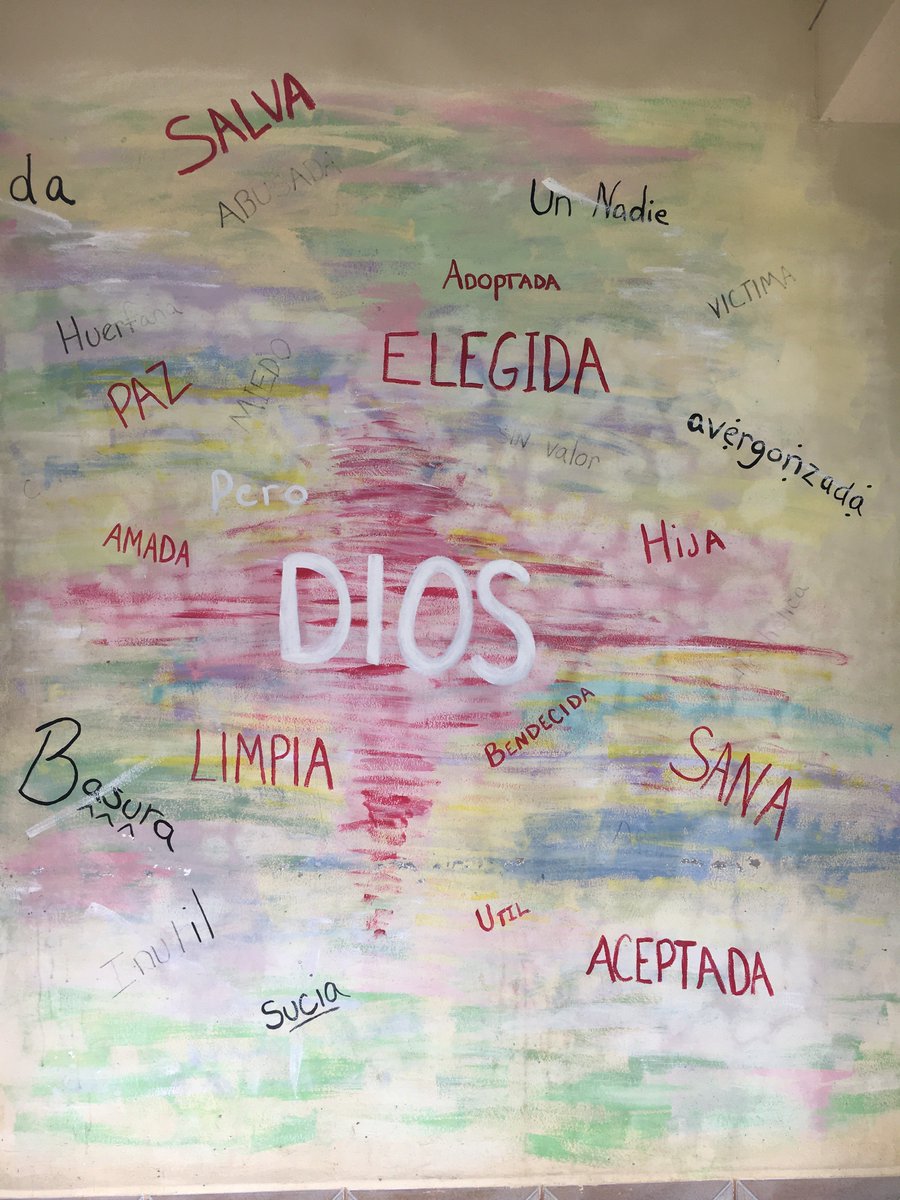 SALVA
da
ABUSADA
Un Nadie
ADOPTADA
VICTIMA
Huerfana
ELEGIDA
PAZ
MIEDO
avergonzada
SIN valor
Pero
AMADA
HIJA
DIOS
BENDECIDA
LIMPIA
SANA
Basura
UTIL
Inutil
ACEPTADA
Sucia